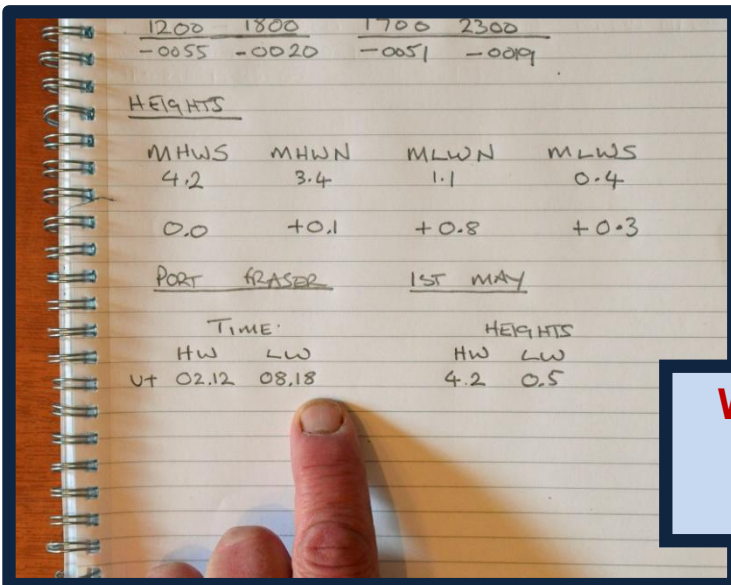 1200 1800 1700 2300
-0055 -0020 -0051 -0019
HEIGHTS
MHWS MHWN MLWN MLWS
4.2 3.4 1.1 0.4
0.0 +0.1 +0.8 +0.3
PORT FRASER 1ST MAY
TIME HEIGHTS
HW LW HW LW
UT 02.12 08.18 4.2 0.5
W